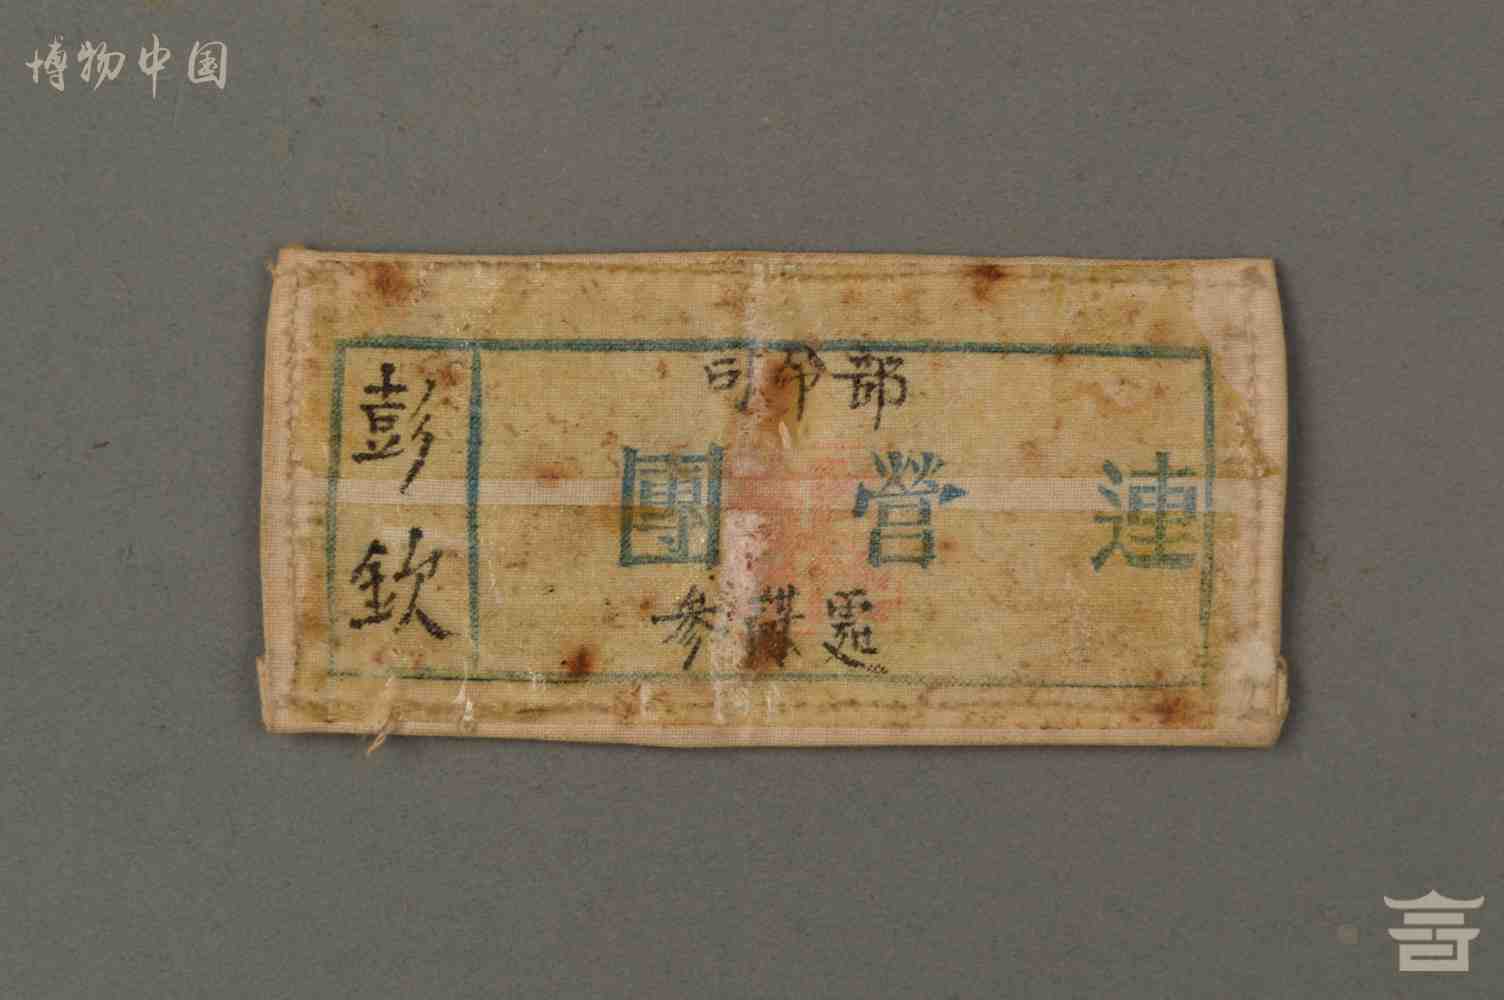 博物中国
司令部
團 營 連
參謀處
彭欽